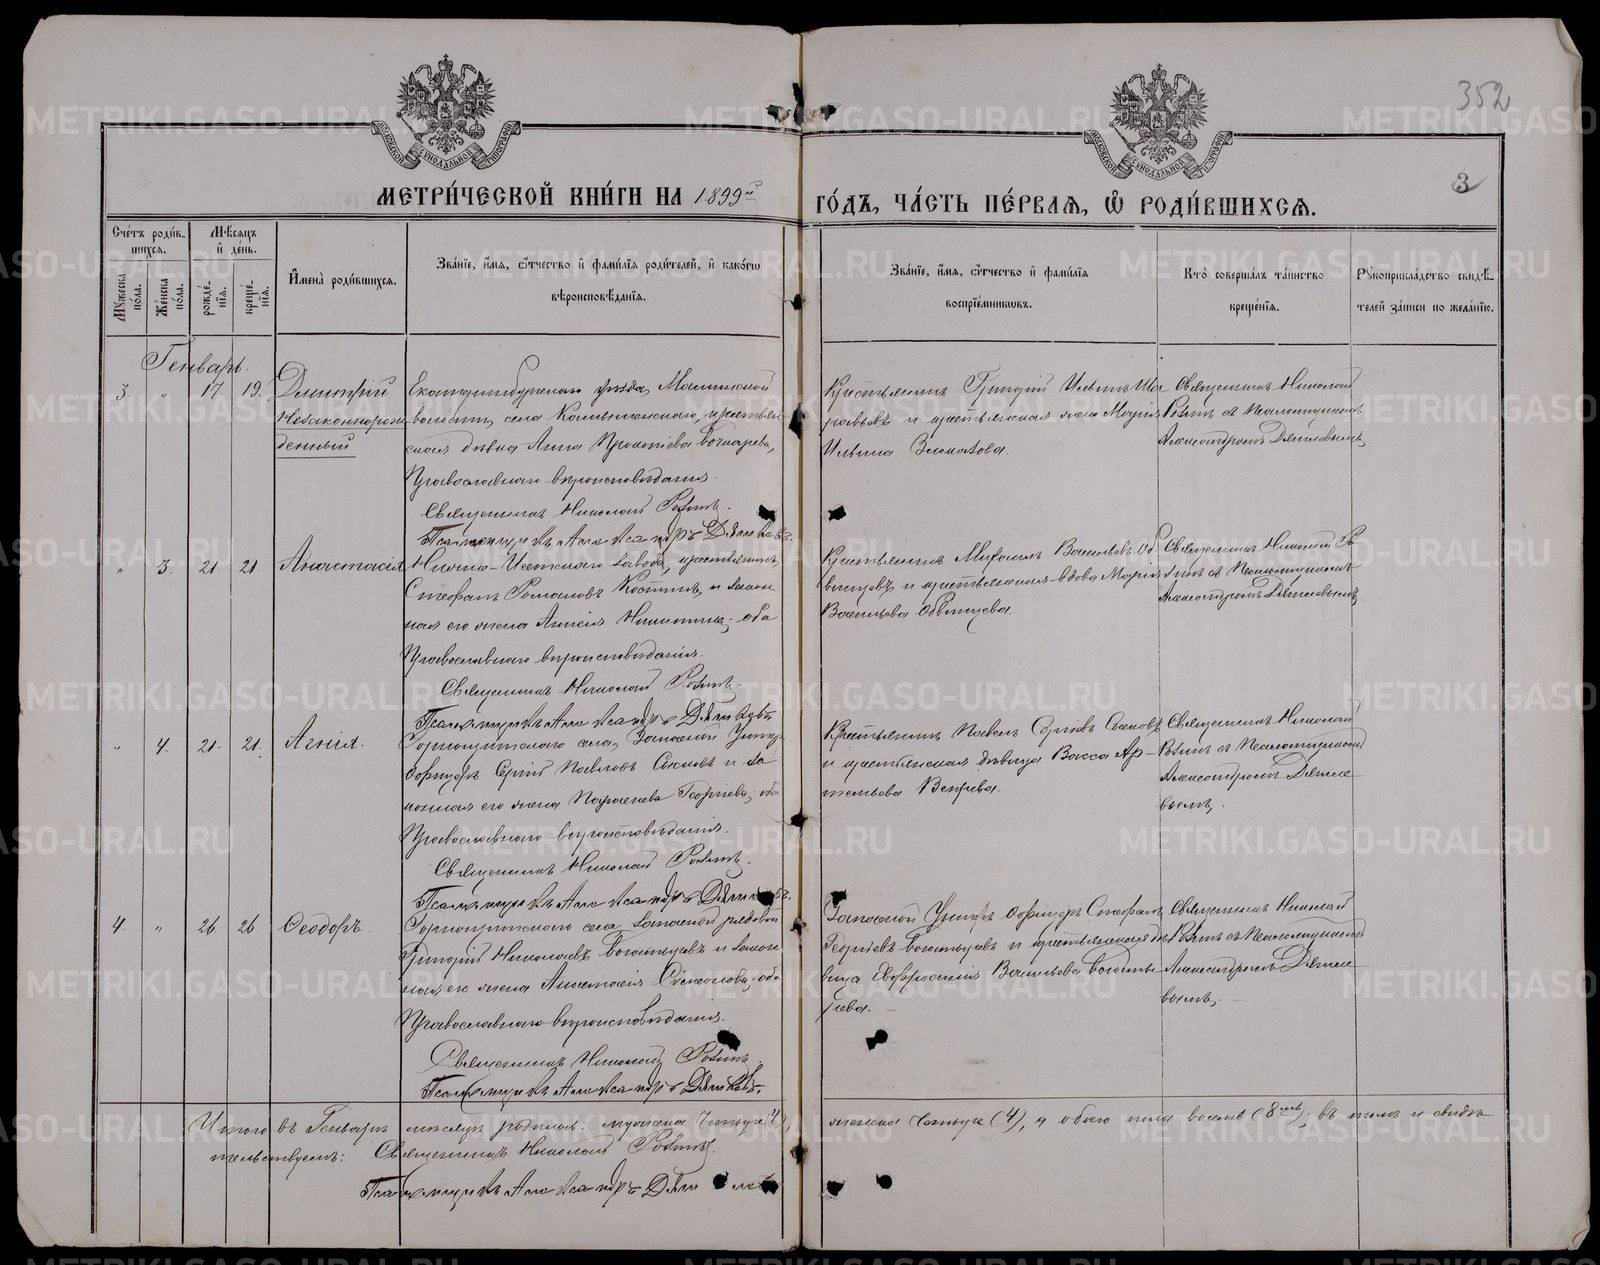 352
3
МОСКОВСКОЙ СѴНОДАЛЬНОЙ ТИПОГРАФІИ
МОСКОВСКОЙ СѴНОДАЛЬНОЙ ТИПОГРАФІИ
МЕТРИ́ЧЕСКОЙ КНИ́ГИ НА 1899й
ГО́ДЪ, ЧА́СТЬ ПЕ́РВАЯ, Ѿ РОДИ́ВШИХСЯ.
Сче́тъ роди́в-
шихся.
Мѣсяцъ
и҆ де́нь.
Мꙋ́жеска
по́ла.
Же́нска
по́ла.
рожде́-
нїя.
креще́-
нїя.
И҆мена̀ роди́вшихся.
Зва́нїе, и҆́мя, ѻ҆́тчество и҆ фами́лїя роди́телей, и҆ како́гѡ
вѣроисповѣ́данїя.
Зва́нїе, и҆́мя, ѻ҆́тчество и҆ фами́лїя
воспрїе́мникѡвъ.
Кто̀ соверша́лъ та́инство
креще́нїя.
Рꙋкоприкла́дство свидѣ́-
телей за́писи по жела́нїю.
Генварь.
3. " 17. 19. Димитрій
незаконнорож
денный
Екатеринбургскаго уѣзда, Маминской
волости, села Калиновскаго, крестьян
ская дѣвка Анна Прокопіева Бочкарева,
Православнаго вѣроисповѣданія.
Священникъ Николай
Псаломщикъ Александръ
Крестьянинъ Григорій Ильинъ
и крестьянская жена Марія
Ильина
Священникъ Николай
съ Псаломщикомъ
Александромъ
" 3. 21. 21. Анастасія
Нижне-Исетскаго завода, крестьянинъ
Стефанъ Романовъ Костинъ, и закон
ная его жена Анисія Никитина; оба
Православнаго вѣроисповѣданія.
Священникъ Николай
Псаломщикъ Александръ
Крестьянинъ Михаилъ Васильевъ
и крестьянская вдова Марія
Васильева
Священникъ Николай
съ Псаломщикомъ
Александромъ
" 4. 21. 21. Агнія.
Горнощитскаго села, Запасной Унтеръ
Офицеръ Сергій Павловъ и за
конная его жена Параскева Георгіева; оба
Православнаго вѣроисповѣданія.
Священникъ Николай
Псаломщикъ Александръ
Крестьянинъ Павелъ
и крестьянская дѣвица Васса Ар-
темьева Вепрева.
Священникъ Николай
съ Псаломщикомъ
Александромъ
4. " 26. 26 Ѳеодоръ.
Горнощитскаго села, запасной рядовой
Григорій Николаевъ Богатыревъ и закон
ная его жена Анастасія; оба
Православнаго вѣроисповѣданія.
Священникъ Николай
Псаломщикъ Александръ
Запасной Унтеръ Офицеръ Стефанъ
Георгіевъ Богатыревъ и крестьянская дѣ
вица Евфросинія Васильева Богаты-
рева.
Священникъ Николай
съ Псаломщикомъ
Александромъ
Итого въ Генварѣ мѣсяцѣ родилось: мужска четыре (4),
женска четыре (4), а обоего пола восемь (8ть); въ томъ и свидѣ
тельствуемъ: Священникъ Николай
Псаломщикъ Александръ
METRIKI.GASO-URAL.RU